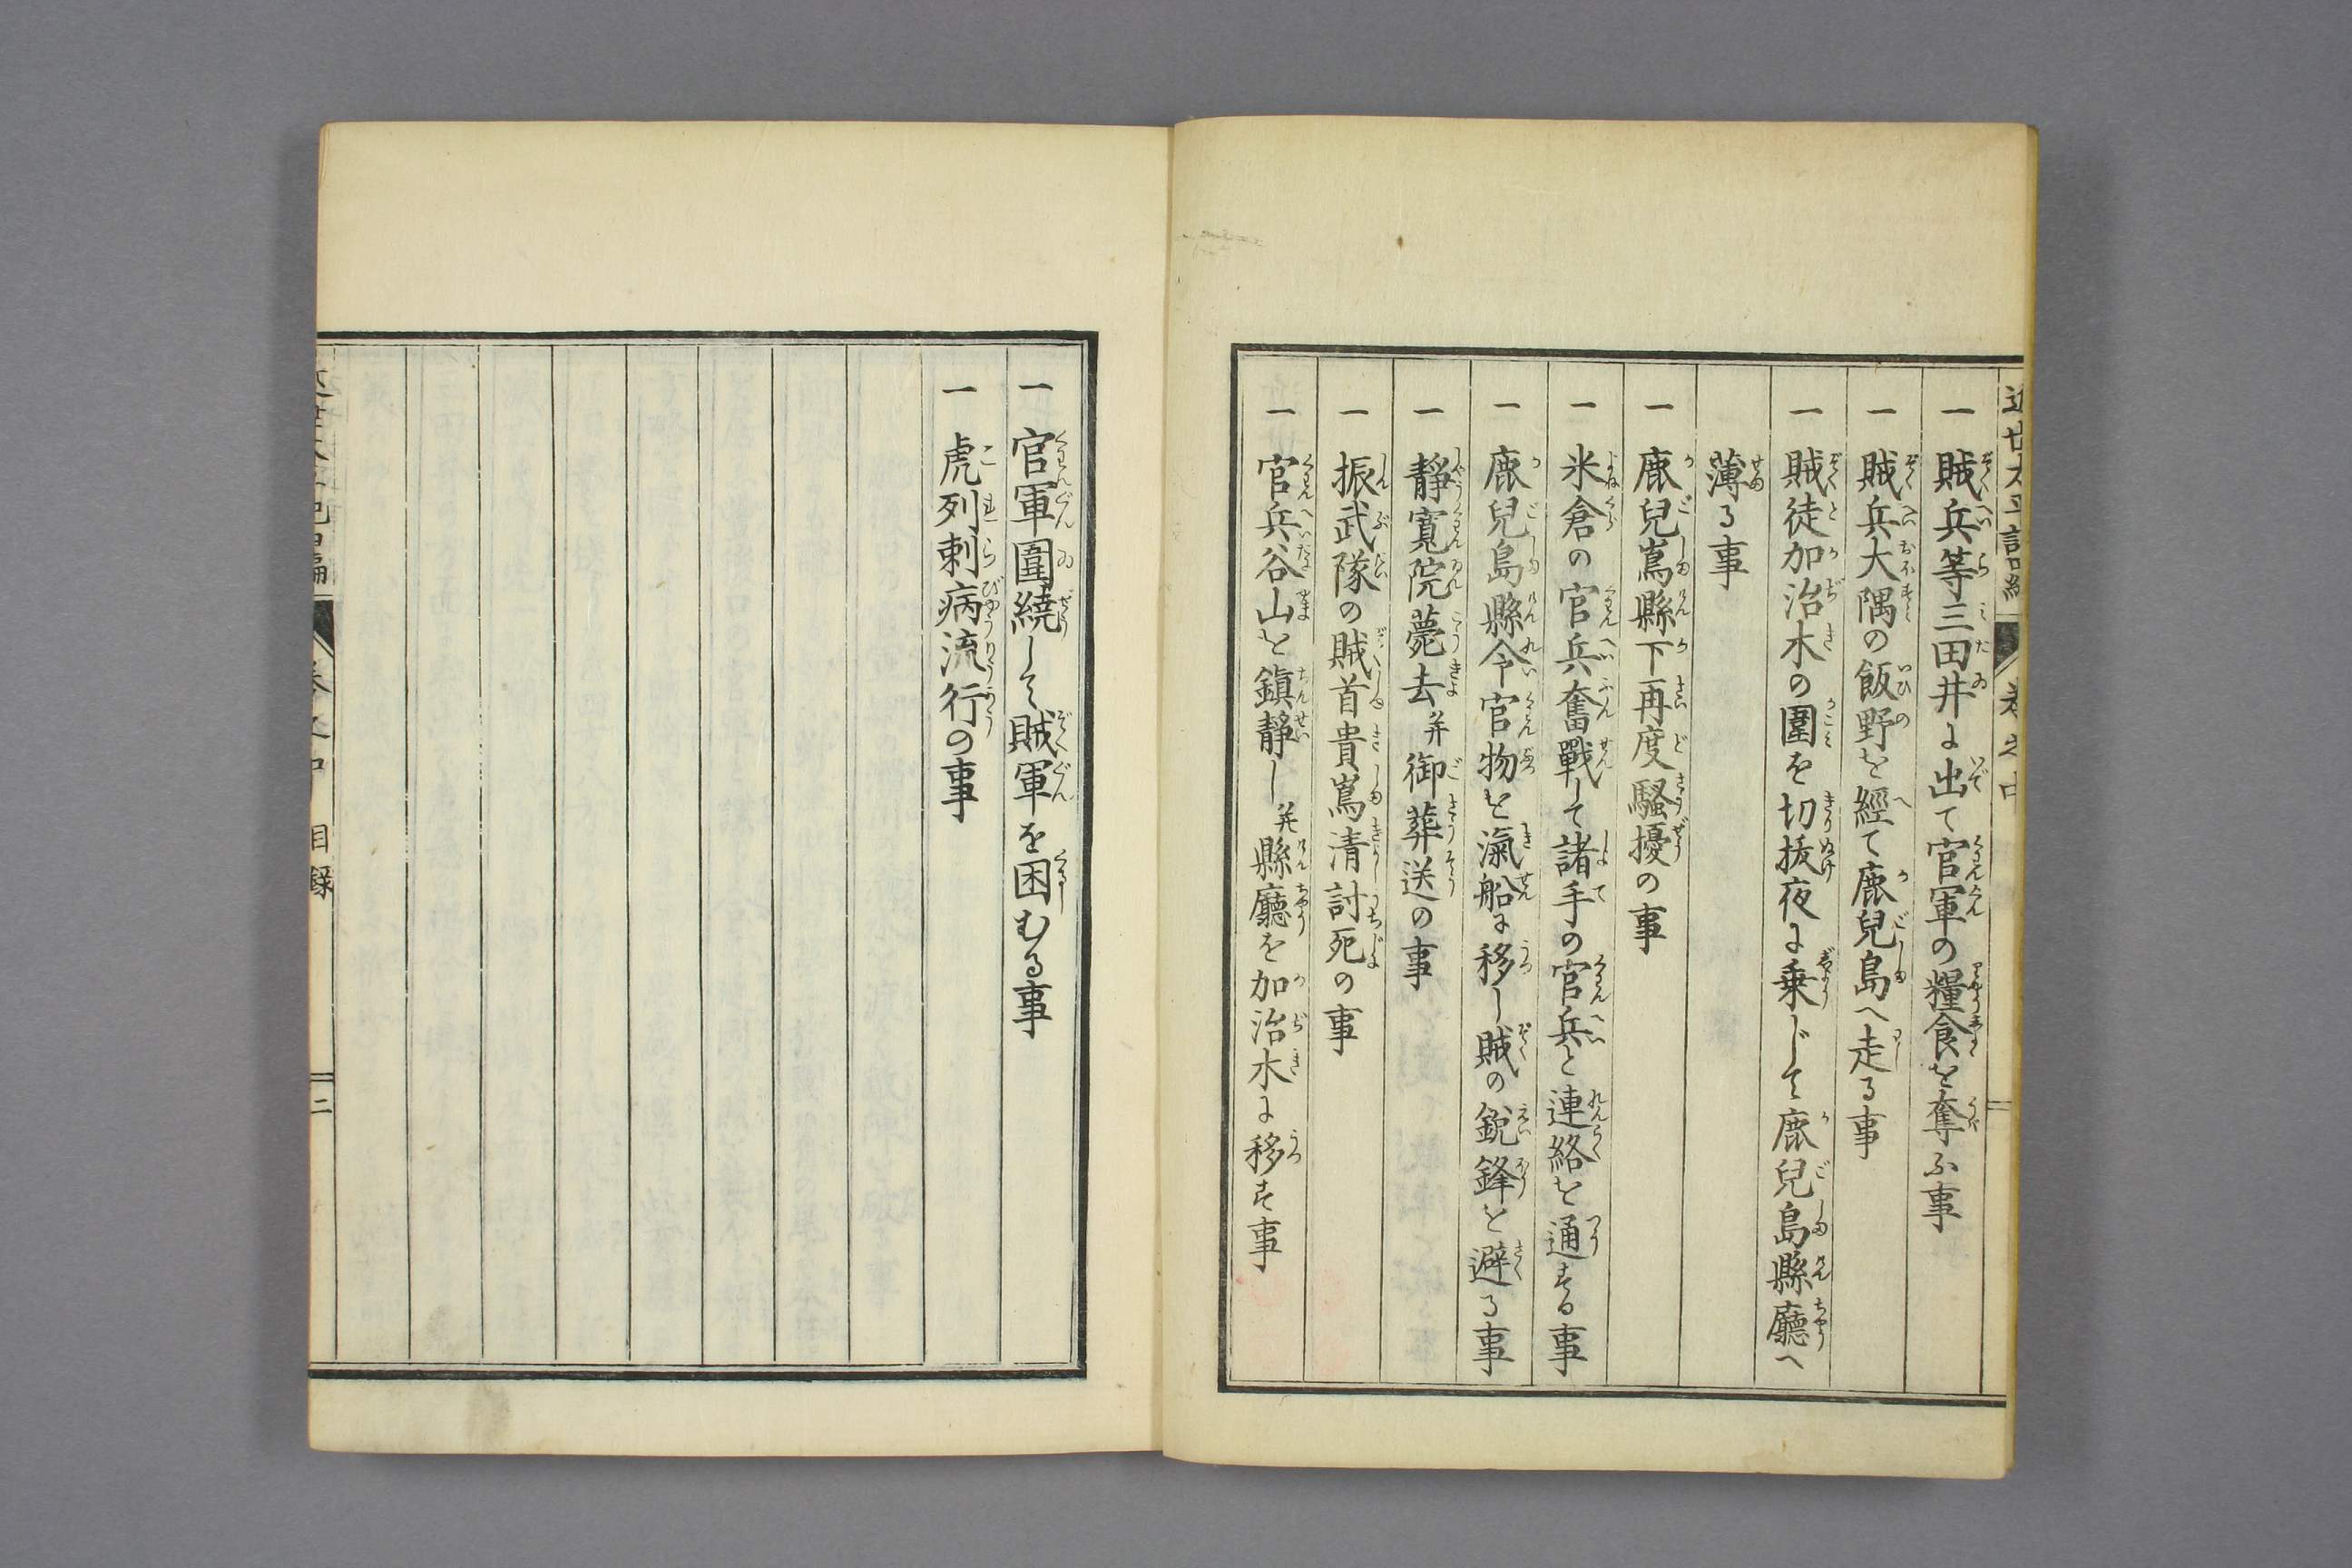 一 賊兵等三田井に出て官軍の糧食を奪ふ事
一 賊兵大隅の飯野を經て鹿兒島へ走る事
一 賊徒加治木の圍を切抜夜に乗じて鹿兒島縣廳へ
薄る事
一 鹿兒嶌縣下再度騷擾の事
一 米倉の官兵奮戰して諸手の官兵と連絡を通する事
一 鹿兒島縣令官物を滊船に移し賊の鋭鋒を避る事
一 靜寛院薨去并御葬送の事
一 振武隊の賊首貴嶌清討死の事
一 官兵谷山を鎭靜し并縣廳を加治木に移す事
一 官軍圍繞して賊軍を困むる事
一 虎列剌病流行の事
目錄
二